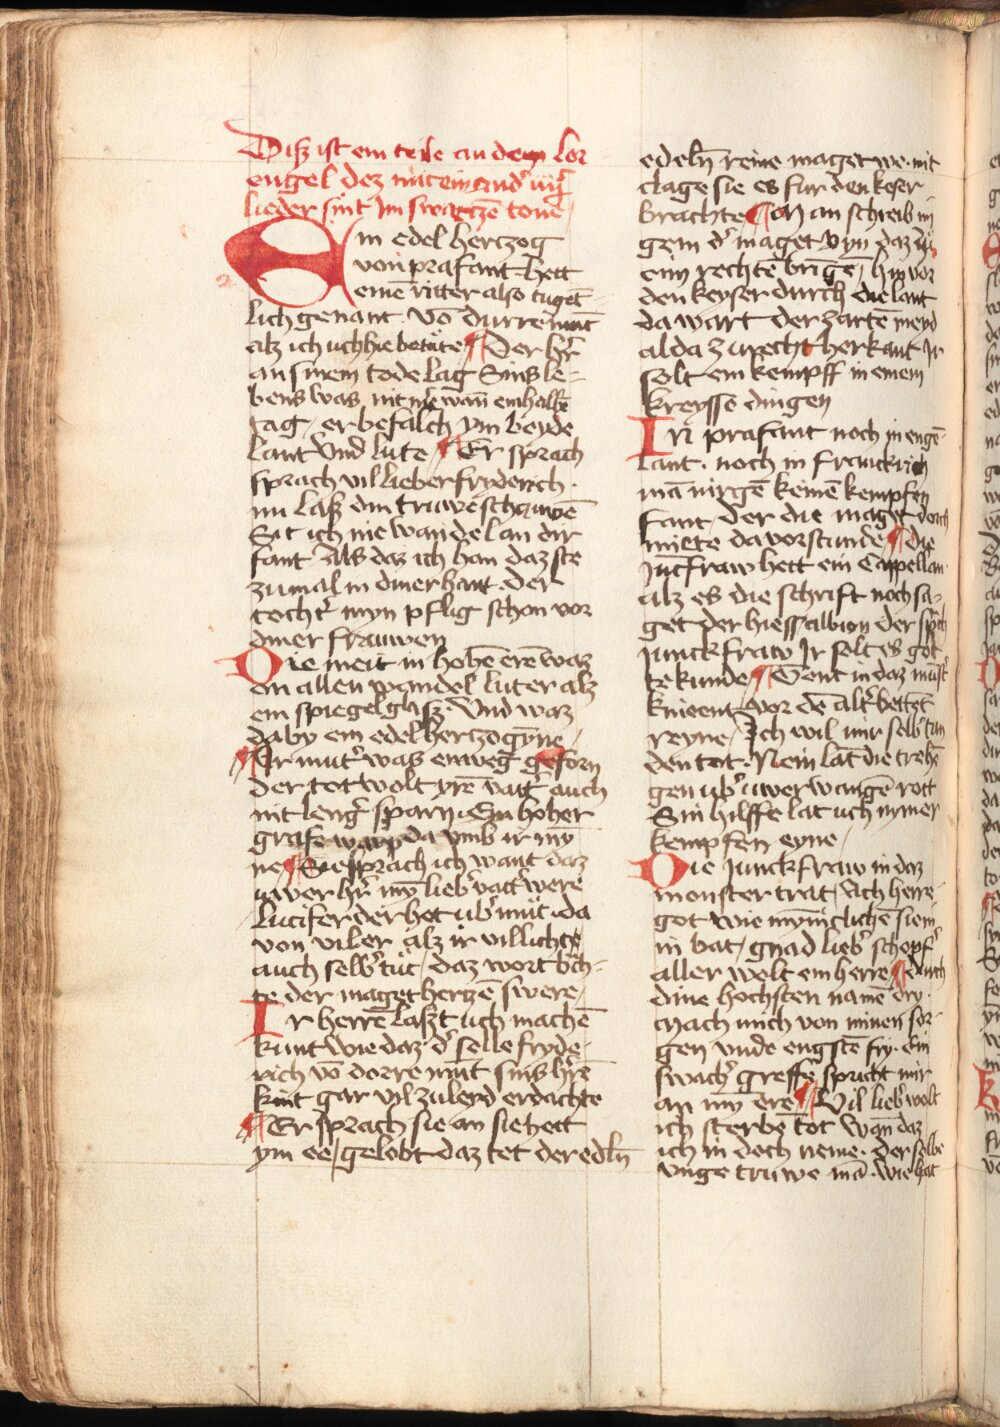 Disz ist ein teile an dem lor
engel dez mit einand' iiij
lieder sint Jm swartzē tone
Ein edel hertzog
von prafant hett
einē ritter also tugēt
lich genant vō durremūt
alz ich uch hie betūte ¶ Der h'r
an sinem tode lag Sins le-
bens was nit me wan ein halbē
tag / er befalch ym beyde
lant vnd lute ¶ Er sprach
sprach vil lieber fryderich .
nu lasz din truwe schauwē
Sit ich nie wandel an dir
fant Als daz ich han daz ste
zumal in diner hant . der
tocht' myn pflig schon vor
diner frauwen
Die meit in hohē erē waz
on allen wandel luter alz
ein spiegel glasz . Vnd waz
da by ein edel hertzogyne
¶ Jr mut' was enweg geforn
der tot wolt yrē vatt' auch
nit leng' sparn . Ein hoher
grafe warp da vmb ir myn
ne ¶ Sie sprach ich want daz
uwer h'r myn lieb' vatt' were
Lucifer der het ub'mut . da
von viler alz ir villichte
auch selb' tut / daz wort b'ch-
te der maget hertzē swere
Ir herrē laszt uch machē
kunt wie daz d' selle fryde-
rich vō dorremūt sins h'rē
kint gar vil zu leyd erdachte
¶ Er sprach sie an sie hett
ym ee / gelobt daz tet der edln
edeln reine maget we . mit
clage sie es fur den keser
brachte ¶ Man schreib in
gem d' maget vyn daz
eim rechtē bringē / hin vor
den keyser durch die lant
da wart der zartē meyd
alda zu recht herkant Jr
solt ein kempff in einem
kreysse dingen
In prafant noch in enge
lant . noch in franckrich
mā nirgē keinē kempfen
fant / der die maget dorch
miete da vorstunde ¶ Die
Juncfraw hett ein Cappellan
alz es die schrift noch sa-
get der hiess albion der sp'ch
Junckfraw Jr solt es got
bekunde ¶ Gent in daz munst'
knieent vor dē alt' bettēt
reyne / Jch wil mir selb' tun
den tot . Nein lāt die trehē
gen ub' uwer wangē rott
Sin hilffe lat uch nymer
kempfen eyne
Die Junckfraw in daz
monster trat / Ach herre
got wie mynniclichē sie in
in bat / gnad lieb' schopf'
aller welt ein herre ¶ durch
dine hochsten namē dry .
Mach mich von minen sor-
gen vnde engstē fry . Ein
swach' greffe spricht mir
an myn ere ¶ Vil lieb' wolt
ich sterbē tot wan daz
ich in doch neme . der selbe
vngetruwe mā . wie hat